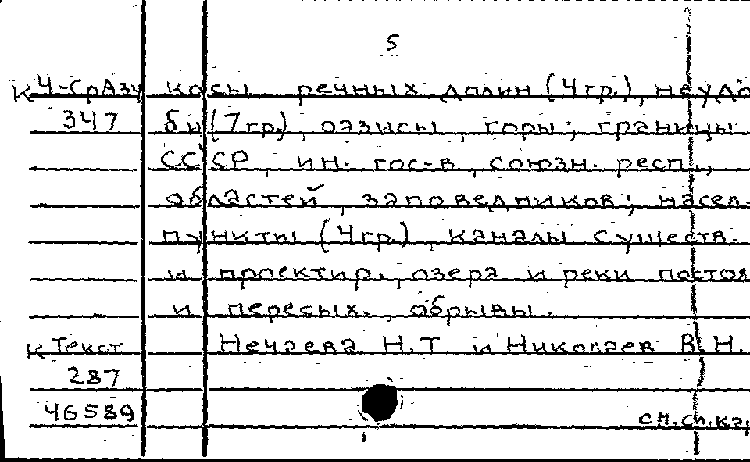 5
К Ч-Ср Азу косы речных долин (4гр.), неудо
347 бы (7гр.), оазисы, горы; границы
СССР, ин. гос-в, союзн. респ.,
областей, заповедников; насел.
пункты (4гр.), каналы существ.
и проектир., озера и реки постоя
и пересых., обрывы.
К Текст Нечаева Н.Т и Николаев В.Н.
287
46589 см.сп.кар